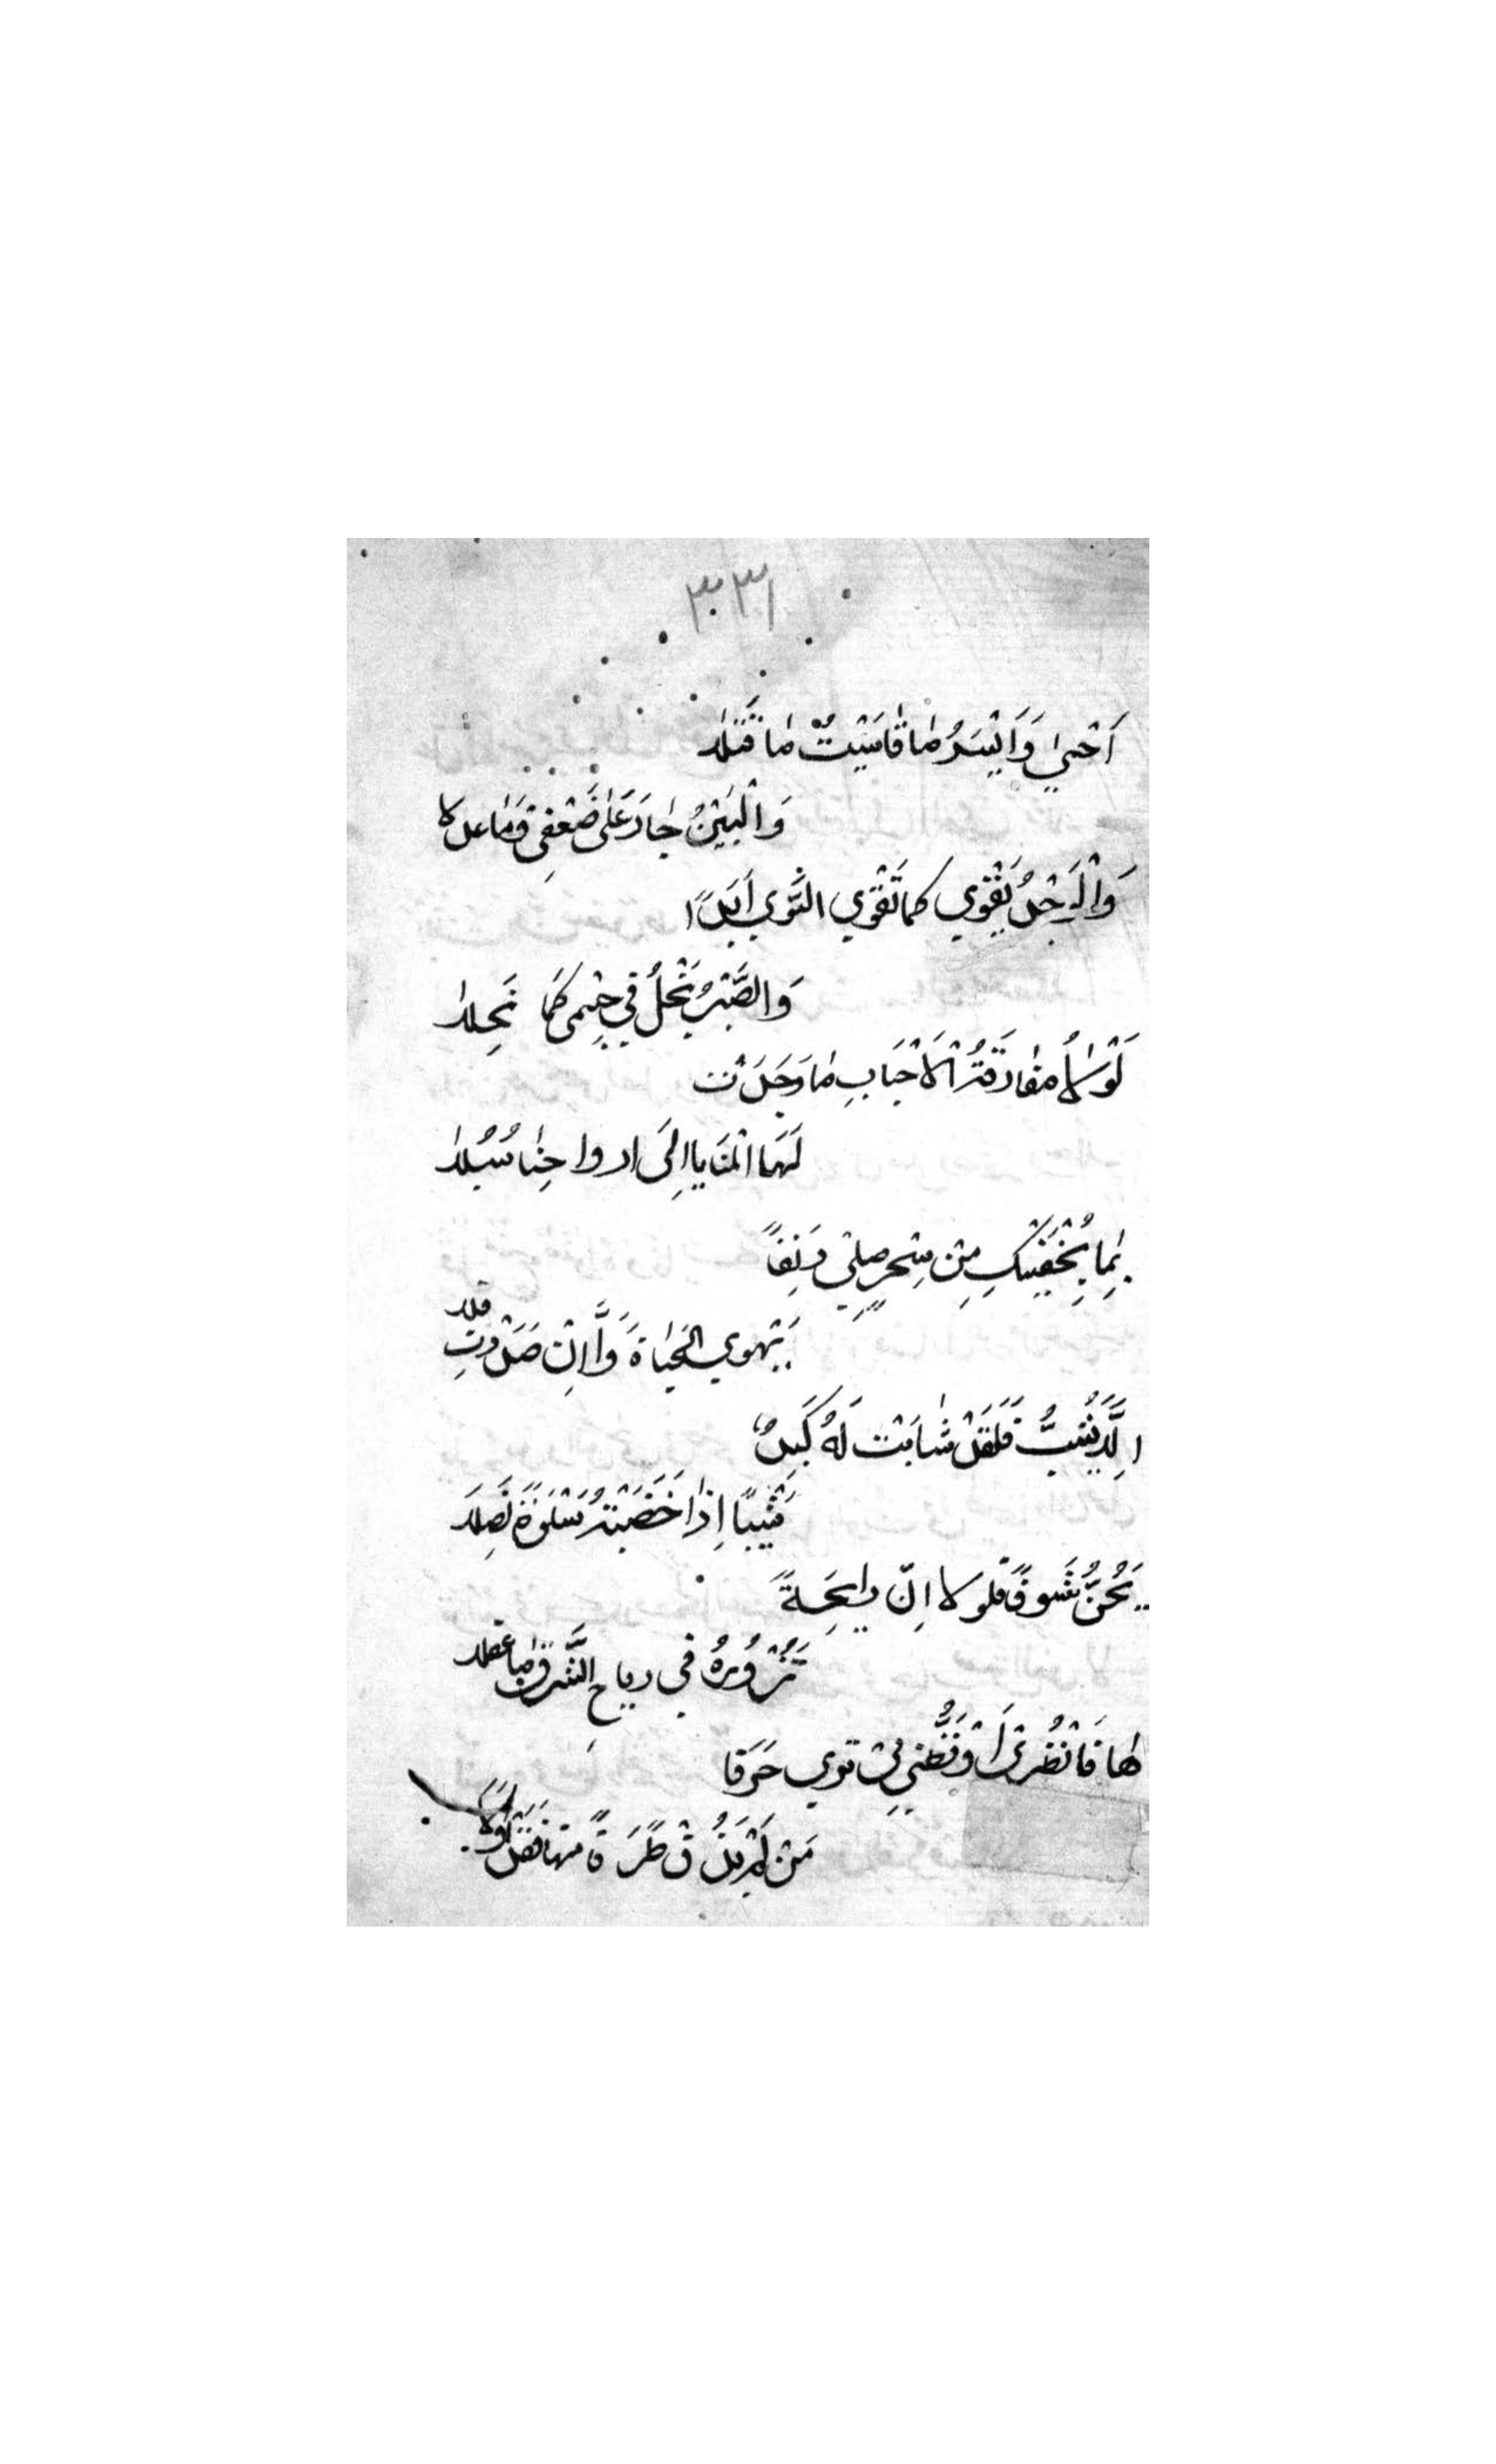 ٣٣١
اَحْيٰي وَاَيْسَرُ مٰا قٰاسَيْتُ مٰا قَتَلا
وَالْبَيْنُ جٰارَ عَلٰى ضَعْفِيْ وَمٰا عدلا
وَالْوَجْدُ يَقْوي كما تَقْوي النَّوي اَبَدًا
وَالصَّبْرُ يَنْحلُ فِي جِسْمى كَمٰا نَحِلا
لَوْلاٰ مفٰارَقَةُ الْاَحْبَابِ مٰا وَجَدَتْ
لَهَا الْمَنَايا اِلَى ارواحِنٰا سُبُلا
بِمٰا بِجَفْنَيْكِ مِنْ سِحْرٍ صِلِيْ دَنِفًا
يَهْوي الحَيٰاةَ وَاَمَّا اِنْ صَدَدْتِ فلا
اِلَّا يَشِبُ فَلَقَدْ شٰابَتْ لَهُ كَبِدٌ
شَيْبًا اِذٰا خَضَبَتْهُ سَلْوَةٌ نَصِلَا
يَحُنُّ شَوقًا فلولا انّ رايحَةً
تَزُورُهُ فِي رياحِ الشَّرقِ مٰا عقلا
هٰا فَانْظُرِيْ اَوْ فَظُنّي بِيْ تري حَرَقا
مَنْ لَمْ يَذُقْ طَرَفًا منها فَقَدْ وَاَلَا